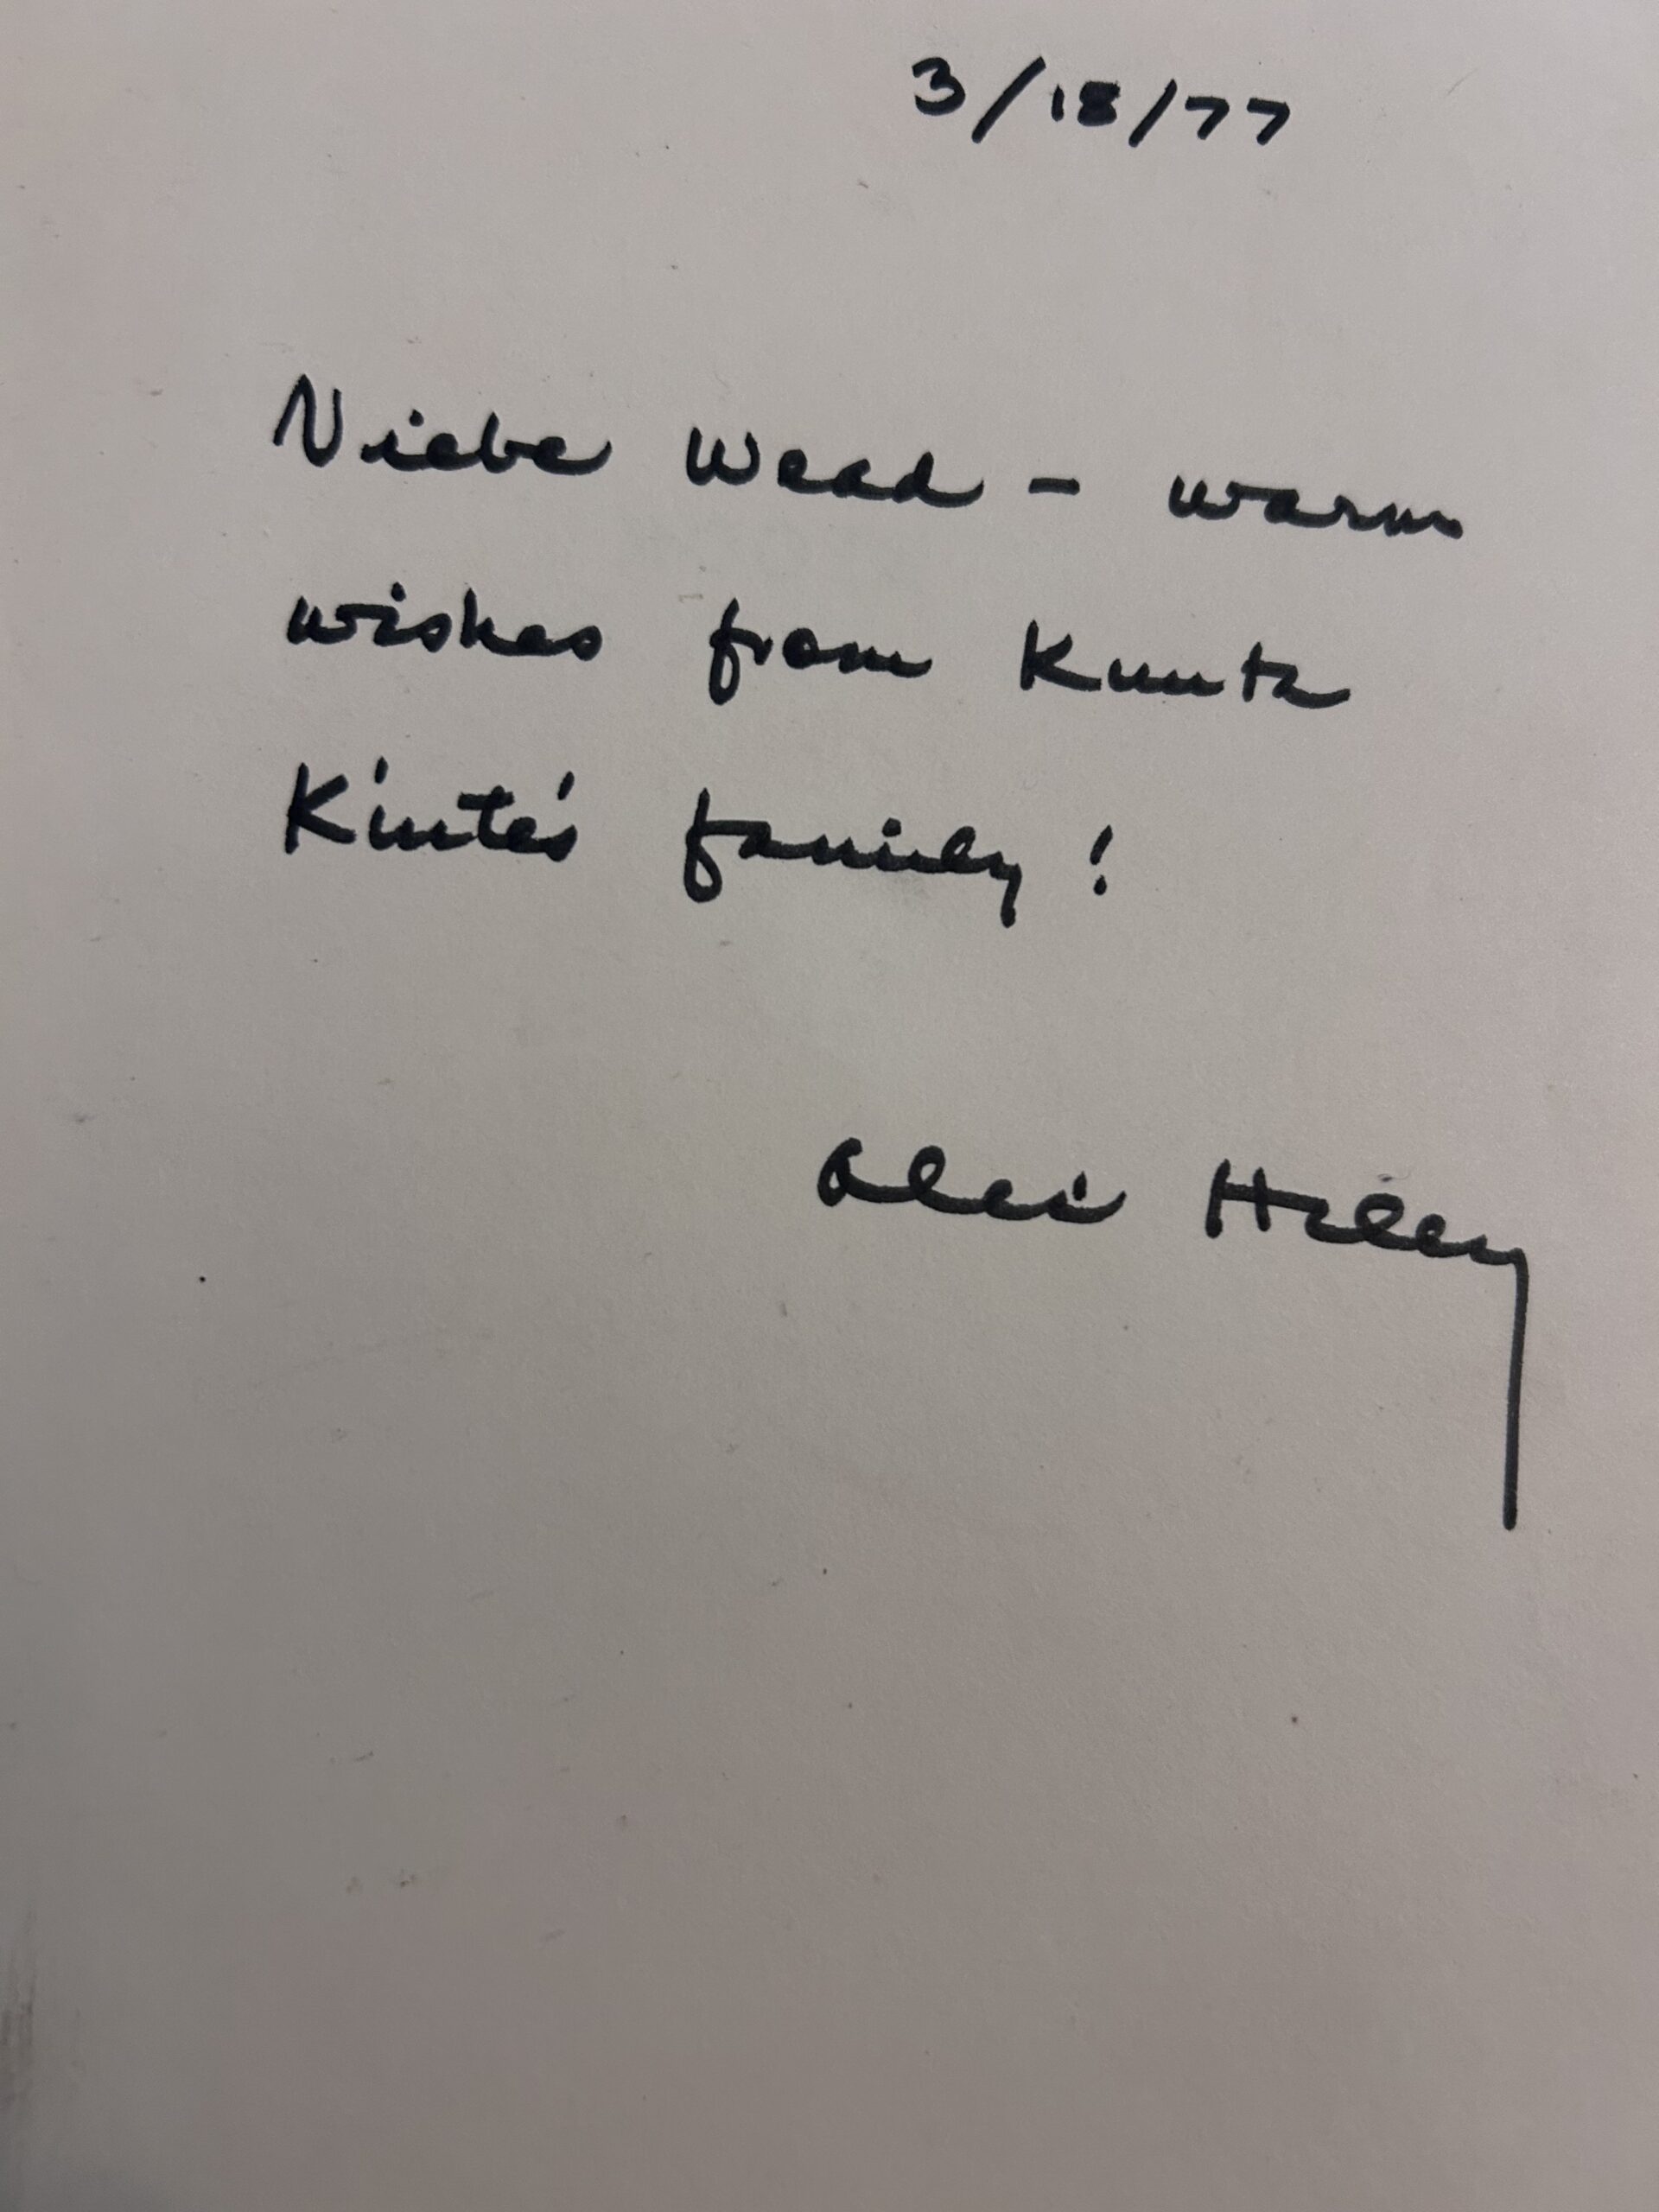 3/18/77
Niebe Wead - warm
wishes from Kunta
Kinte's family!
Alex Haley